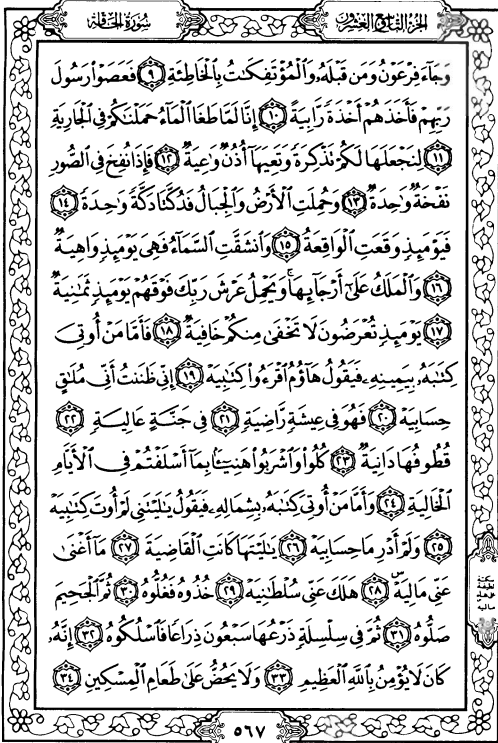 سُورَةُ الحَاقَّةِ
الجُزءُ التَّاسِعُ وَالعِشْرُونَ
وَجَآءَ فِرْعَوْنُ وَمَن قَبْلَهُۥ وَٱلْمُؤْتَفِكَٰتُ بِٱلْخَاطِئَةِ ٩ فَعَصَوْا۟ رَسُولَ
رَبِّهِمْ فَأَخَذَهُمْ أَخْذَةً رَّابِيَةً ١٠ إِنَّا لَمَّا طَغَا ٱلْمَآءُ حَمَلْنَٰكُمْ فِى ٱلْجَارِيَةِ
١١ لِنَجْعَلَهَا لَكُمْ تَذْكِرَةً وَتَعِيَهَآ أُذُنٌ وَٰعِيَةٌ ١٢ فَإِذَا نُفِخَ فِى ٱلصُّورِ
نَفْخَةٌ وَٰحِدَةٌ ١٣ وَحُمِلَتِ ٱلْأَرْضُ وَٱلْجِبَالُ فَدُكَّتَا دَكَّةً وَٰحِدَةً ١٤
فَيَوْمَئِذٍ وَقَعَتِ ٱلْوَاقِعَةُ ١٥ وَٱنشَقَّتِ ٱلسَّمَآءُ فَهِىَ يَوْمَئِذٍ وَاهِيَةٌ
١٦ وَٱلْمَلَكُ عَلَىٰٓ أَرْجَآئِهَا ۚ وَيَحْمِلُ عَرْشَ رَبِّكَ فَوْقَهُمْ يَوْمَئِذٍ ثَمَٰنِيَةٌ
١٧ يَوْمَئِذٍ تُعْرَضُونَ لَا تَخْفَىٰ مِنكُمْ خَافِيَةٌ ١٨ فَأَمَّا مَنْ أُوتِىَ
كِتَٰبَهُۥ بِيَمِينِهِۦ فَيَقُولُ هَآؤُمُ ٱقْرَءُوا۟ كِتَٰبِيَهْ ١٩ إِنِّى ظَنَنتُ أَنِّى مُلَٰقٍ
حِسَابِيَهْ ٢٠ فَهُوَ فِى عِيشَةٍ رَّاضِيَةٍ ٢١ فِى جَنَّةٍ عَالِيَةٍ ٢٢
قُطُوفُهَا دَانِيَةٌ ٢٣ كُلُوا۟ وَٱشْرَبُوا۟ هَنِيٓـًٔۢا بِمَآ أَسْلَفْتُمْ فِى ٱلْأَيَّامِ
ٱلْخَالِيَةِ ٢٤ وَأَمَّا مَنْ أُوتِىَ كِتَٰبَهُۥ بِشِمَالِهِۦ فَيَقُولُ يَٰلَيْتَنِى لَمْ أُوتَ كِتَٰبِيَهْ
٢٥ وَلَمْ أَدْرِ مَا حِسَابِيَهْ ٢٦ يَٰلَيْتَهَا كَانَتِ ٱلْقَاضِيَةَ ٢٧ مَآ أَغْنَىٰ
عَنِّى مَالِيَهْ ۜ ٢٨ هَلَكَ عَنِّى سُلْطَٰنِيَهْ ٢٩ خُذُوهُ فَغُلُّوهُ ٣٠ ثُمَّ ٱلْجَحِيمَ
صَلُّوهُ ٣١ ثُمَّ فِى سِلْسِلَةٍ ذَرْعُهَا سَبْعُونَ ذِرَاعًا فَٱسْلُكُوهُ ٣٢ إِنَّهُۥ
كَانَ لَا يُؤْمِنُ بِٱللَّهِ ٱلْعَظِيمِ ٣٣ وَلَا يَحُضُّ عَلَىٰ طَعَامِ ٱلْمِسْكِينِ ٣٤
٥٦٧